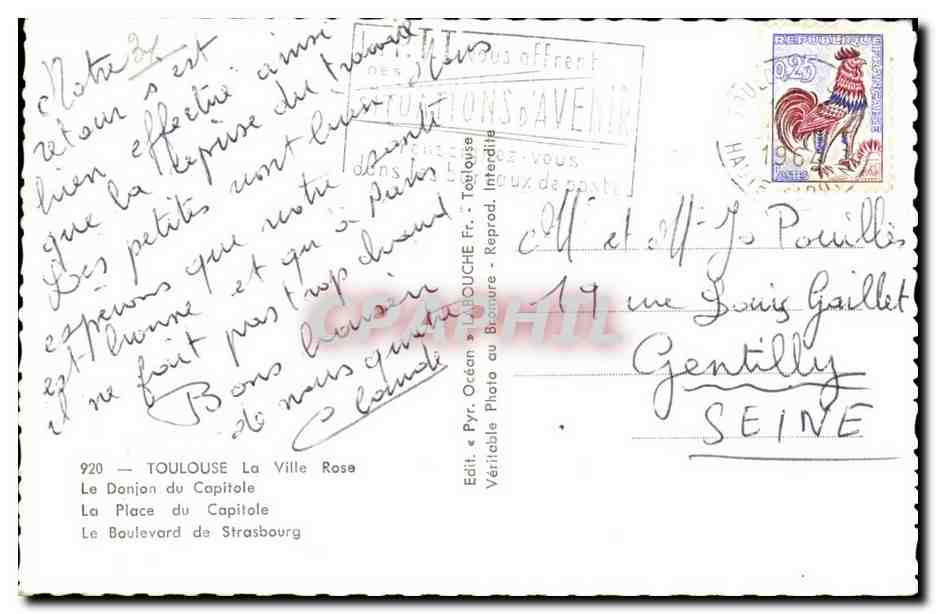 Notre 3x
retour s'est
bien effectué ainsi
que la reprise du travail
Les petits vont bien. Nous
espérons que votre santé
est bonne et qu'à
il ne fait pas trop chaud
Bons baisers
de nous quatre
Claude
P.T.T. vous offrent
DES
SITUATIONS D'AVENIR
Renseignez-vous
dans les bureaux de poste
TOULOUSE
196
REPUBLIQUE FRANÇAISE
0,25
POSTES
M et Me Jo Pouillès
19 rue Louis Gaillet
Gentilly
SEINE
Edit. « Pyr. Océan » LABOUCHE Fr. - Toulouse
Véritable Photo au Bromure - Reprod. Interdite
CPAPHIL
920 — TOULOUSE La Ville Rose
Le Donjon du Capitole
La Place du Capitole
Le Boulevard de Strasbourg